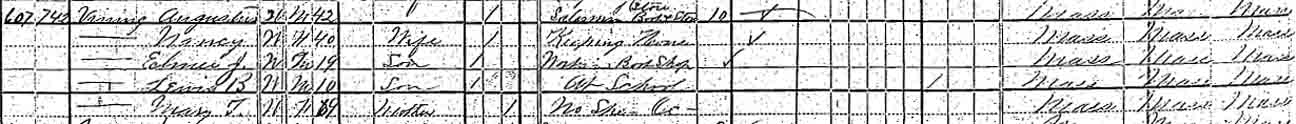 607 742 Vining Augustus W M 42 1 Salesman Boot Store 10 Mass Mass Mass
— Nancy W F 40 Wife 1 Keeping House Mass Mass Mass
— Elmer J. W M 19 Son 1 Works in Boot Shop Mass Mass Mass
— Lewis B W M 10 Son 1 At School 1 Mass Mass Mass
— Mary T. W F 69 Mother 1 No Mass Mass Mass